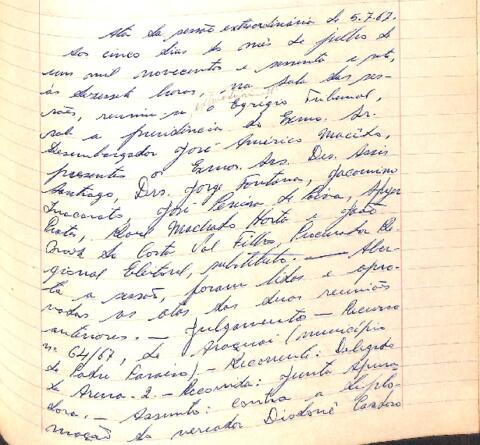 Ata da sessão extraordinária de 5.7.67.
Aos cinco dias do mês de julho de
um mil novecentos e sessenta e sete,
às dezessete horas, na sala das ses-
sões, reuniu-se o Egrégio Tribunal,
sob a presidência do Exmo. Sr.
Desembargador José Américo Macêdo,
presentes os Exmos. Srs. Des. Assis
Santiago, Drs. Jorge Fontana, Jacomino
Inacarato, José Pereira de Paiva,
Prates, Machado Horta e João
da Costa Val Filho, Procurador Re-
gional Eleitoral, substituto. — Aber-
ta a sessão, foram lidas e apro-
vadas as atas das duas reuniões
anteriores. — Julgamento — Recurso
nº 64/67, de Araçuaí (município
de Padre Paraíso) — Recorrente: Delegado
de Arena-2 — Recorrida: Junta Apura-
dora. — Assunto: contra a diplo-
mação do vereador Cardoso